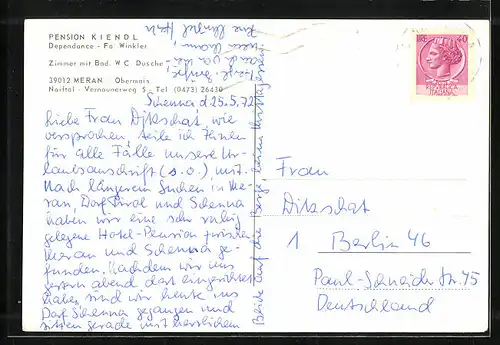 PENSION KIENDL
Dependance - Fa. Winkler
Zimmer mit Bad. W C Dusche
39012 MERAN Obermais
Naiftal - Vernaunerweg 5 - Tel (0473) 26430
Schenna d 25.5.72
Liebe Frau Dikschat, wie
versprochen, teile ich Ihnen
für alle Fälle unsere Ur-
laubsanschrift (s.o.) mit.
Nach längerem Suchen in Me-
ran, Dorf Tirol und Schenna
haben wir eine sehr ruhig
gelegene Hotel-Pension zwischen
Meran und Schenna ge-
funden. Nachdem wir uns
gestern abend dort eingerichtet
haben sind wir heute ins
Dorf Schenna gegangen und
sitzen gerade mit herrlichem
Blick auf die Berge beim Mittagessen.
Frau
Dikschat
1 Berlin 46
Paul-Schneider Str. 45
Deutschland
40